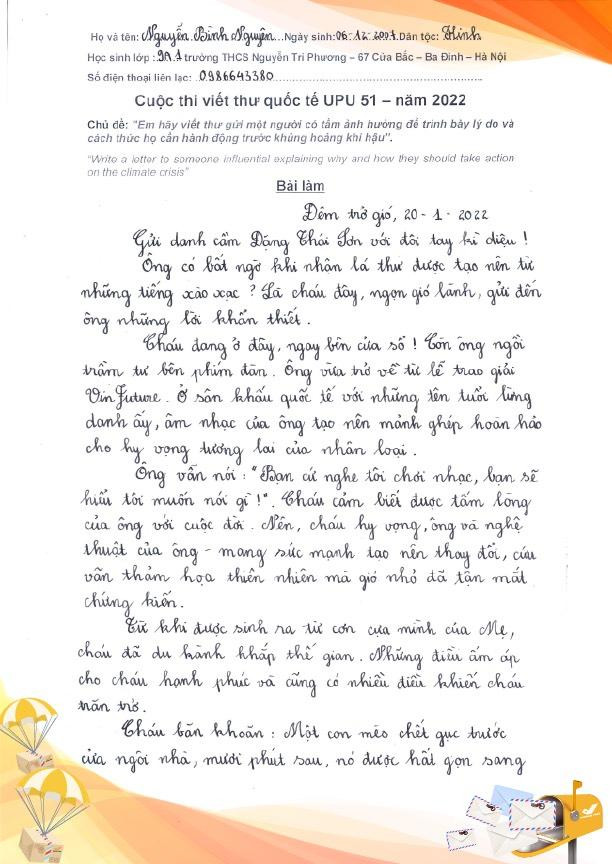 Họ và tên: Nguyễn Bình Nguyên Ngày sinh: 06.12.2007 Dân tộc: Kinh
Học sinh lớp: 9A1 trường THCS Nguyễn Tri Phương – 67 Cửa Bắc – Ba Đình – Hà Nội
Số điện thoại liên lạc: 0986643380
Cuộc thi viết thư quốc tế UPU 51 – năm 2022
Chủ đề: "Em hãy viết thư gửi một người có tầm ảnh hưởng để trình bày lý do và
cách thức họ cần hành động trước khủng hoảng khí hậu".
"Write a letter to someone influential explaining why and how they should take action
on the climate crisis"
Bài làm
Đêm trở gió, 20-1-2022
Gửi danh cầm Đặng Thái Sơn với đôi tay kì diệu!
Ông có bất ngờ khi nhận lá thư được tạo nên từ
những tiếng xào xạc? Là cháu đây, ngọn gió lành, gửi đến
ông những lời khẩn thiết.
Cháu đang ở đây, ngay bên cửa sổ! Còn ông ngồi
trầm tư bên phím đàn. Ông vừa trở về từ lễ trao giải
VinFuture. Ở sân khấu quốc tế với những tên tuổi lừng
danh ấy, âm nhạc của ông tạo nên mảnh ghép hoàn hảo
cho hy vọng tương lai của nhân loại.
Ông vẫn nói: "Bạn cứ nghe tôi chơi nhạc, bạn sẽ
hiểu tôi muốn nói gì!". Cháu cảm biết được tấm lòng
của ông với cuộc đời. Nên, cháu hy vọng, ông và nghệ
thuật của ông - mang sức mạnh tạo nên thay đổi, cứu
vãn thảm họa thiên nhiên mà gió nhỏ đã tận mắt
chứng kiến.
Từ khi được sinh ra từ cơn cựa mình của Mẹ,
cháu đã du hành khắp thế gian. Những điều ấm áp
cho cháu hạnh phúc và cũng có nhiều điều khiến cháu
trăn trở.
Cháu băn khoăn: Một con mèo chết gục trước
cửa ngôi nhà, mười phút sau, nó được hất gọn sang